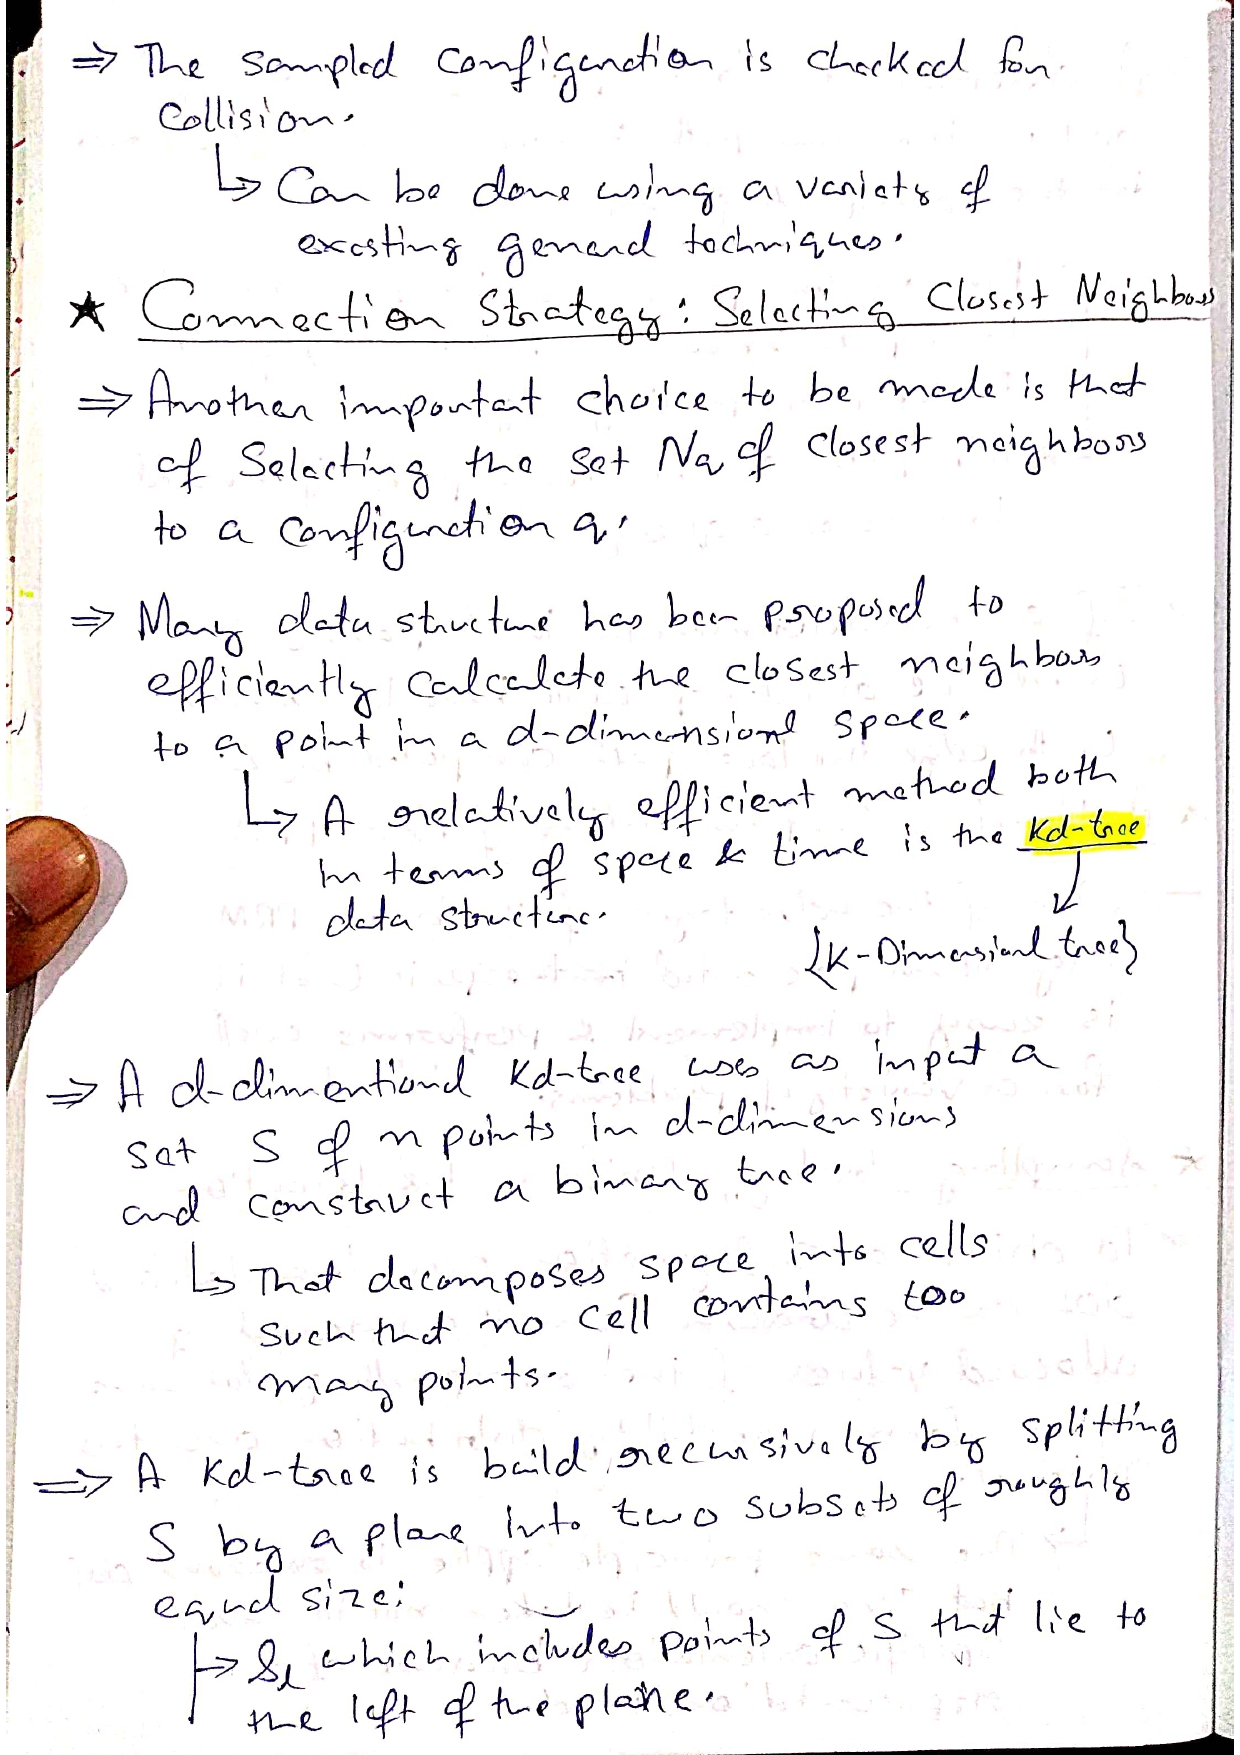 ⇒ The sampled configuration is checked for
collision.
↳ Can be done using a variety of
existing general techniques.
★ Connection Strategy: Selecting Closest Neighbors
⇒ Another important choice to be made is that
of Selecting the set Nq of closest neighbors
to a configuration q.
⇒ Many data structure has been proposed to
efficiently calculate the closest neighbors
to a point in a d-dimensional space.
↳ A relatively efficient method both
in terms of space & time is the Kd-tree
data structure.
{K-Dimensional tree}
⇒ A d-dimentional Kd-tree uses as input a
set S of n points in d-dimensions
and construct a binary tree.
↳ That decomposes space into cells
such that no cell contains too
many points.
⇒ A Kd-tree is build recursively by splitting
S by a plane into two subsets of roughly
equal size:
↳ Sl which includes points of S that lie to
the left of the plane.